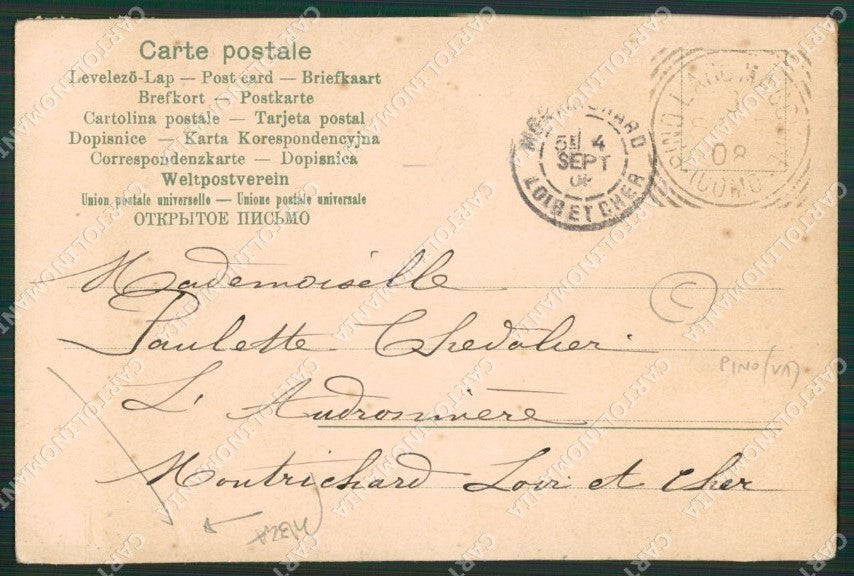 Carte postale
Levelező-Lap — Post card — Briefkaart
Brefkort — Postkarte
Cartolina postale — Tarjeta postal
Dopisnice — Karta Korespondencyjna
Correspondenzkarte — Dopisnica
Weltpostverein
Union postale universelle — Unione postale universale
ОТКРЫТОЕ ПИСЬМО
MONTRICHARD
4
SEPT
LOIR ET CHER
PINO LAGO
08
(COMO)
Mademoiselle
Paulette Chevalier
C
PINO (VA)
L'Audronnière
Montrichard Loir et Cher
CARTOLINOMANIA